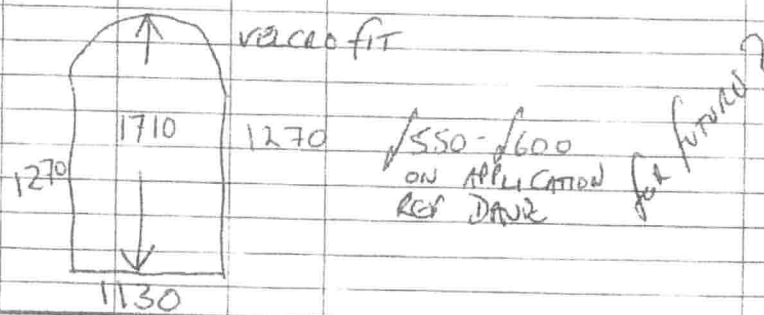 VELCRO FIT
1710
1270
1270
£550-£600
ON APPLICATION
REF DAVE
FOR FUTURE?
1130